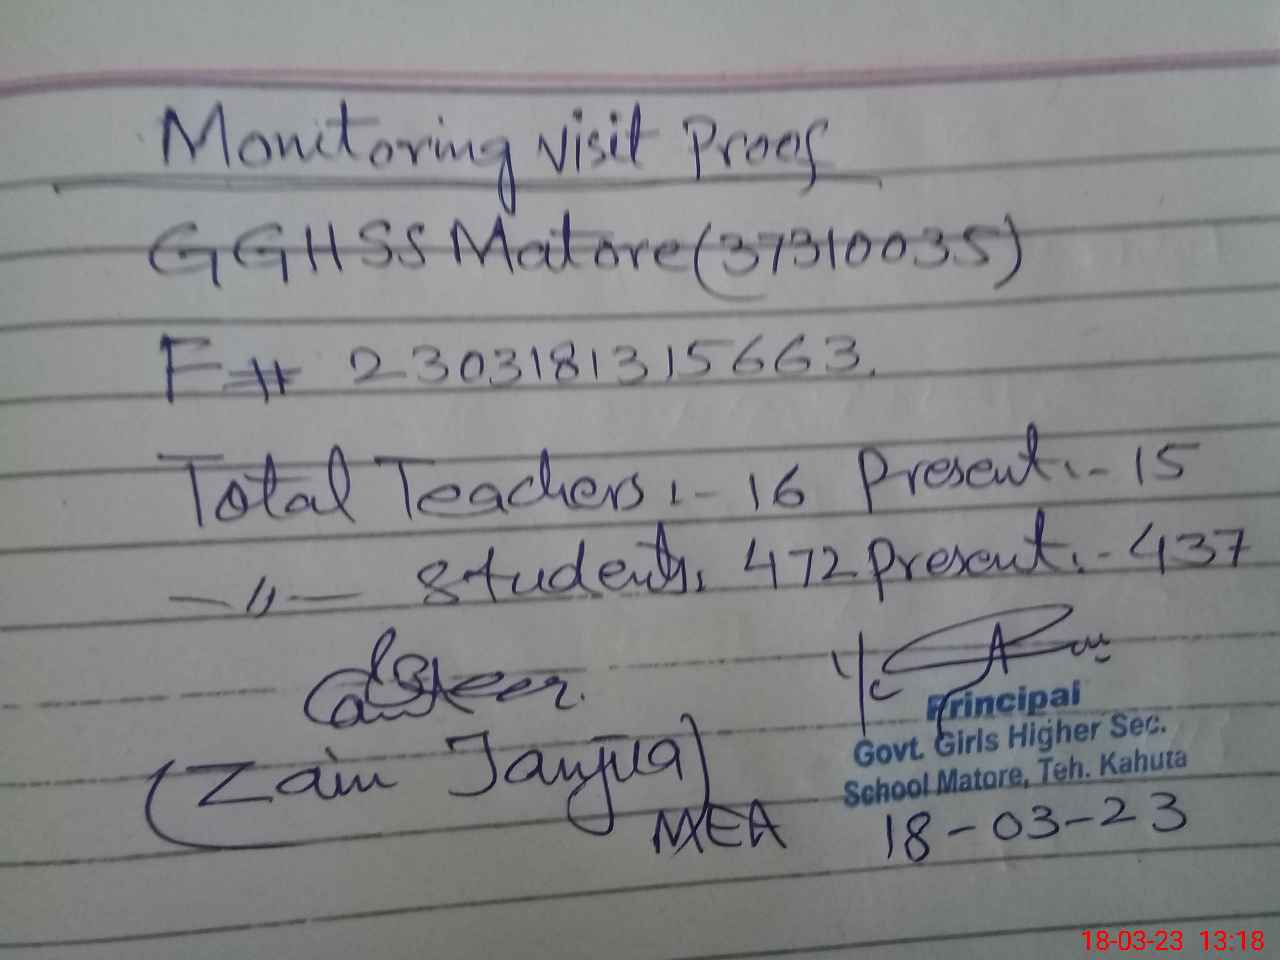 Monitoring visit Proof
GGHSS Matore (37310035)
F# 2303181315663.
Total Teachers:- 16 Present:- 15
—〃— Students: 472 Present:- 437
(Zain Janjua)
MEA
Principal
Govt. Girls Higher Sec.
School Matore, Teh. Kahuta
18-03-23
18-03-23 13:18